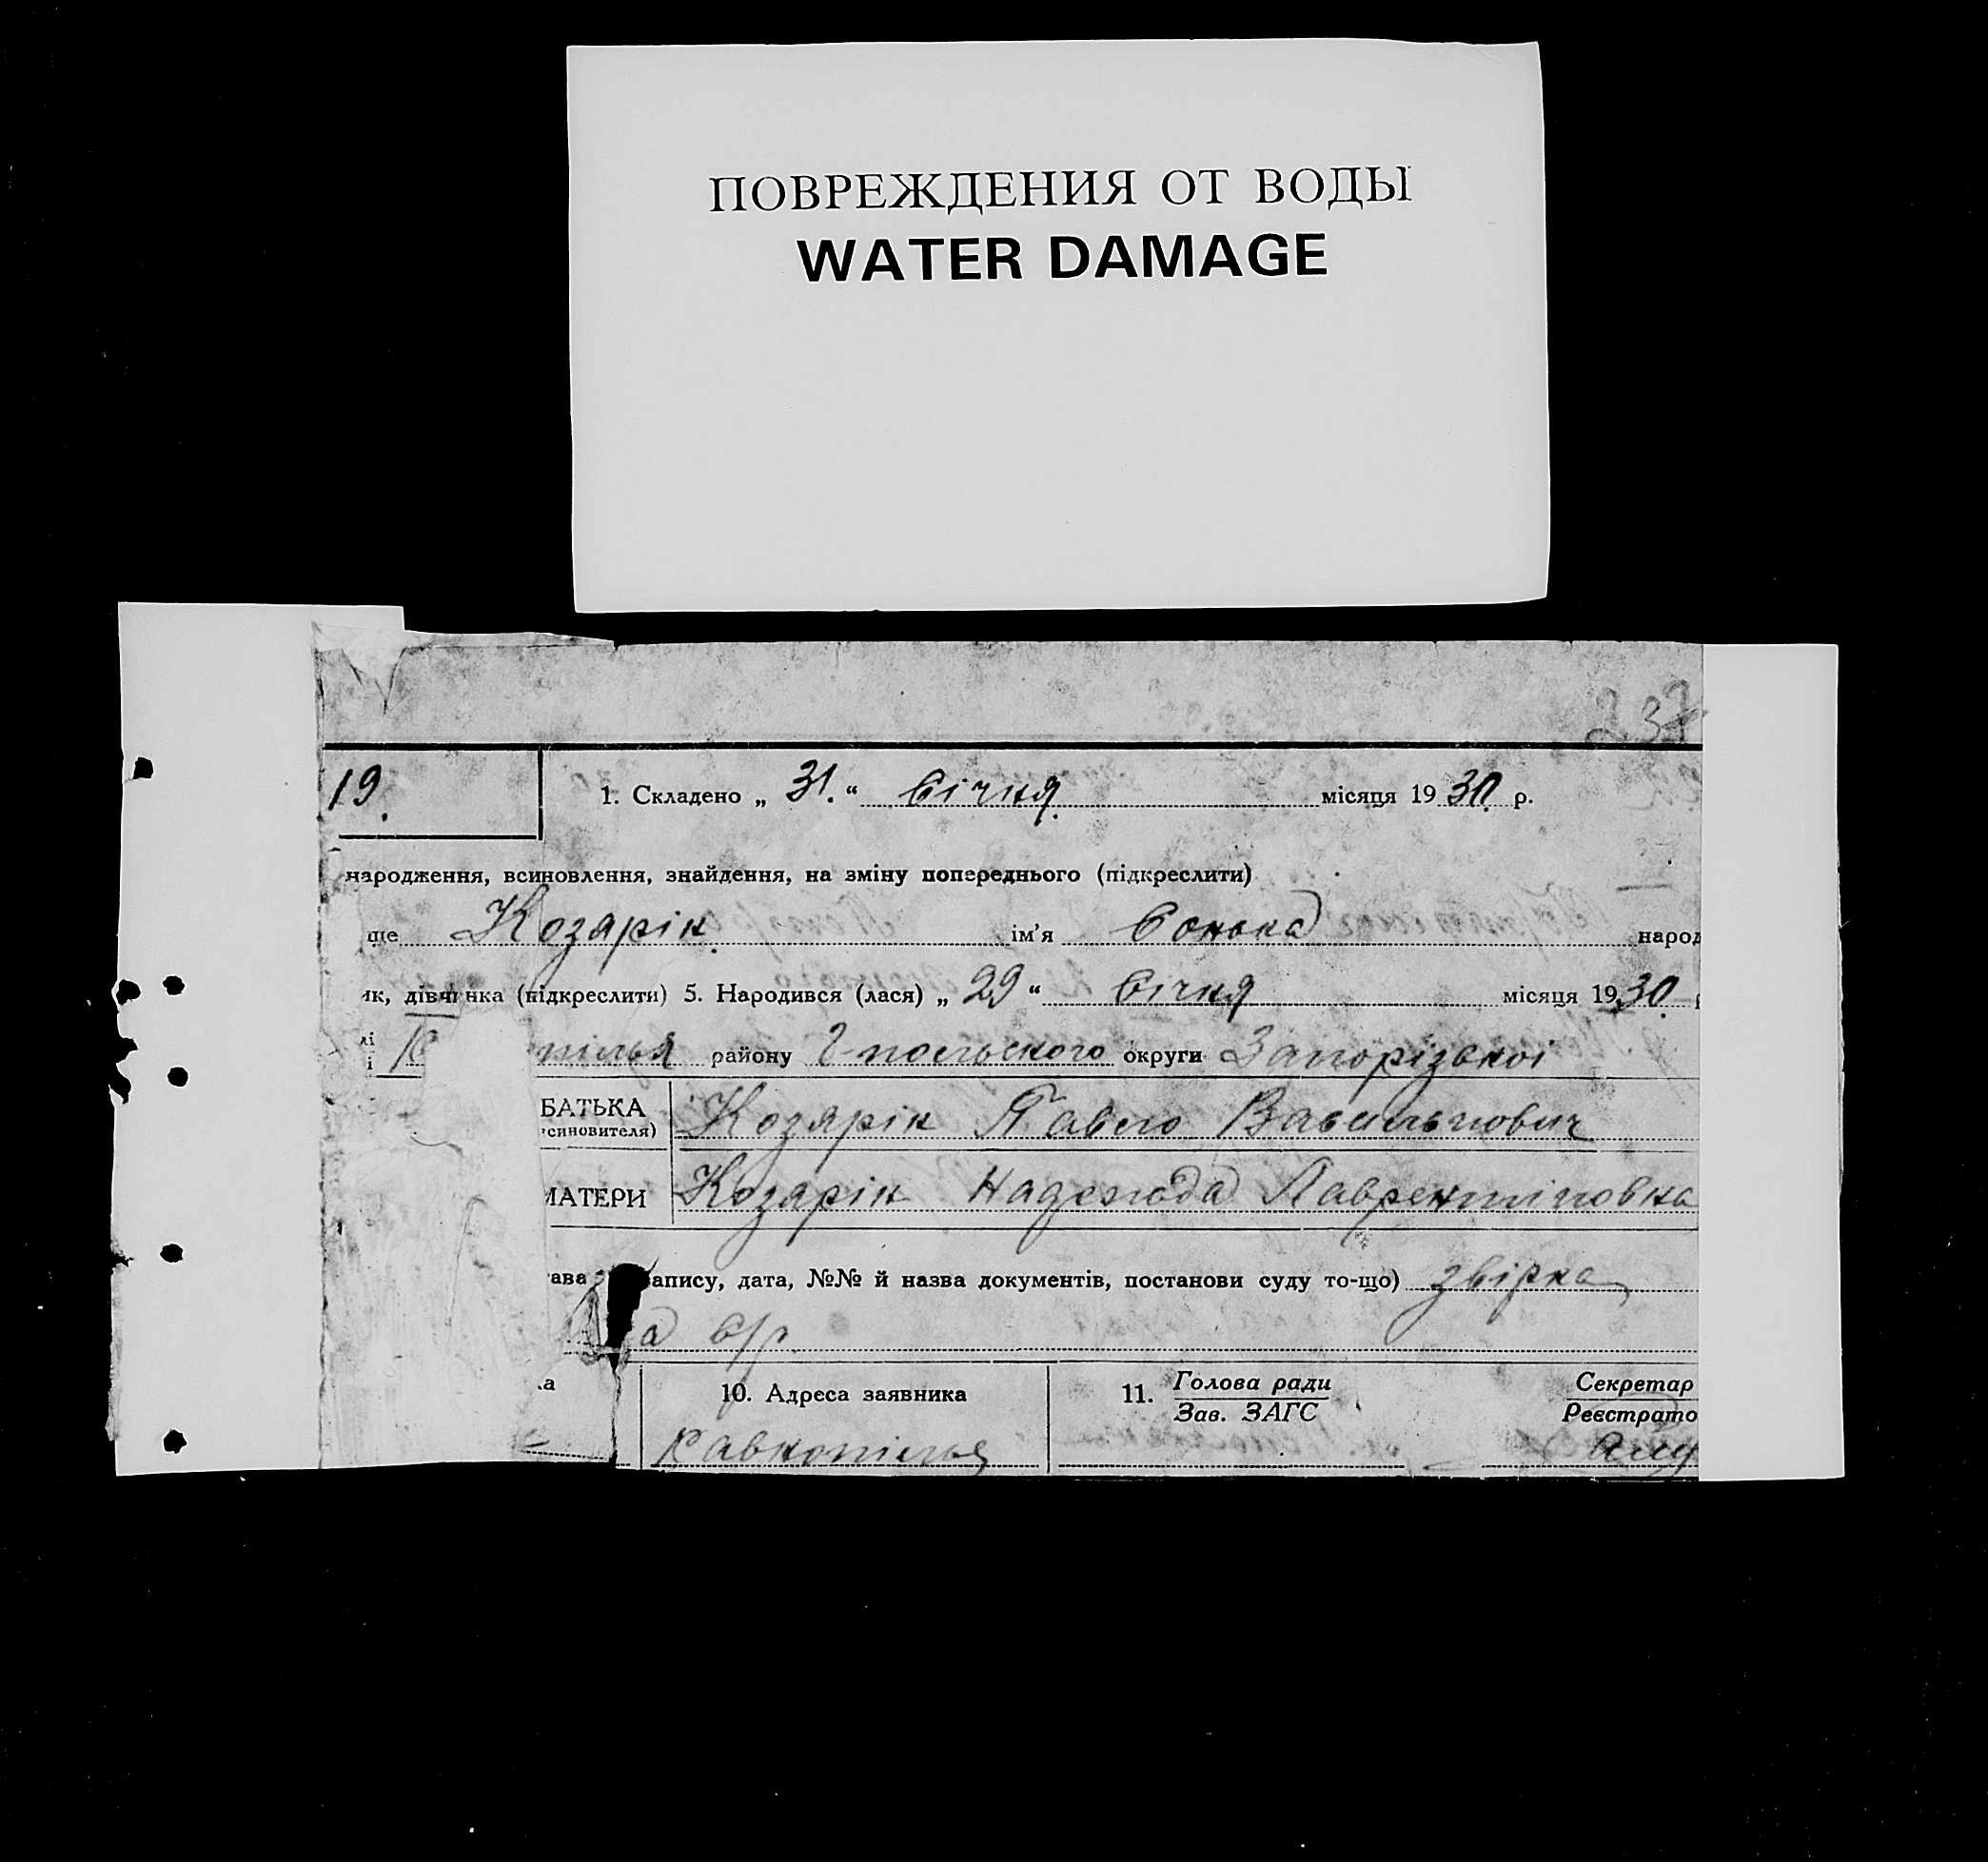 ПОВРЕЖДЕНИЯ ОТ ВОДЫ
WATER DAMAGE
237
19. 1. Складено „31.“ січня місяця 1930. р.
народження, всиновлення, знайдення, на зміну попереднього (підкреслити)
ще Козарік ім’я Сонька народ
ик, дівчинка (підкреслити) 5. Народився (лася) „29“ січня місяця 1930.
пілья району Г-польського округи Запорізької
БАТЬКА Козарік Павло Васильович
синовителя)
МАТЕРИ Козарік Надежда
ава запису, дата, №№ й назва документів, постанови суду то-що)
а с/р.
ка 10. Адреса заявника 11. Голова ради Секретар
Зав. ЗАГС Реєстрато